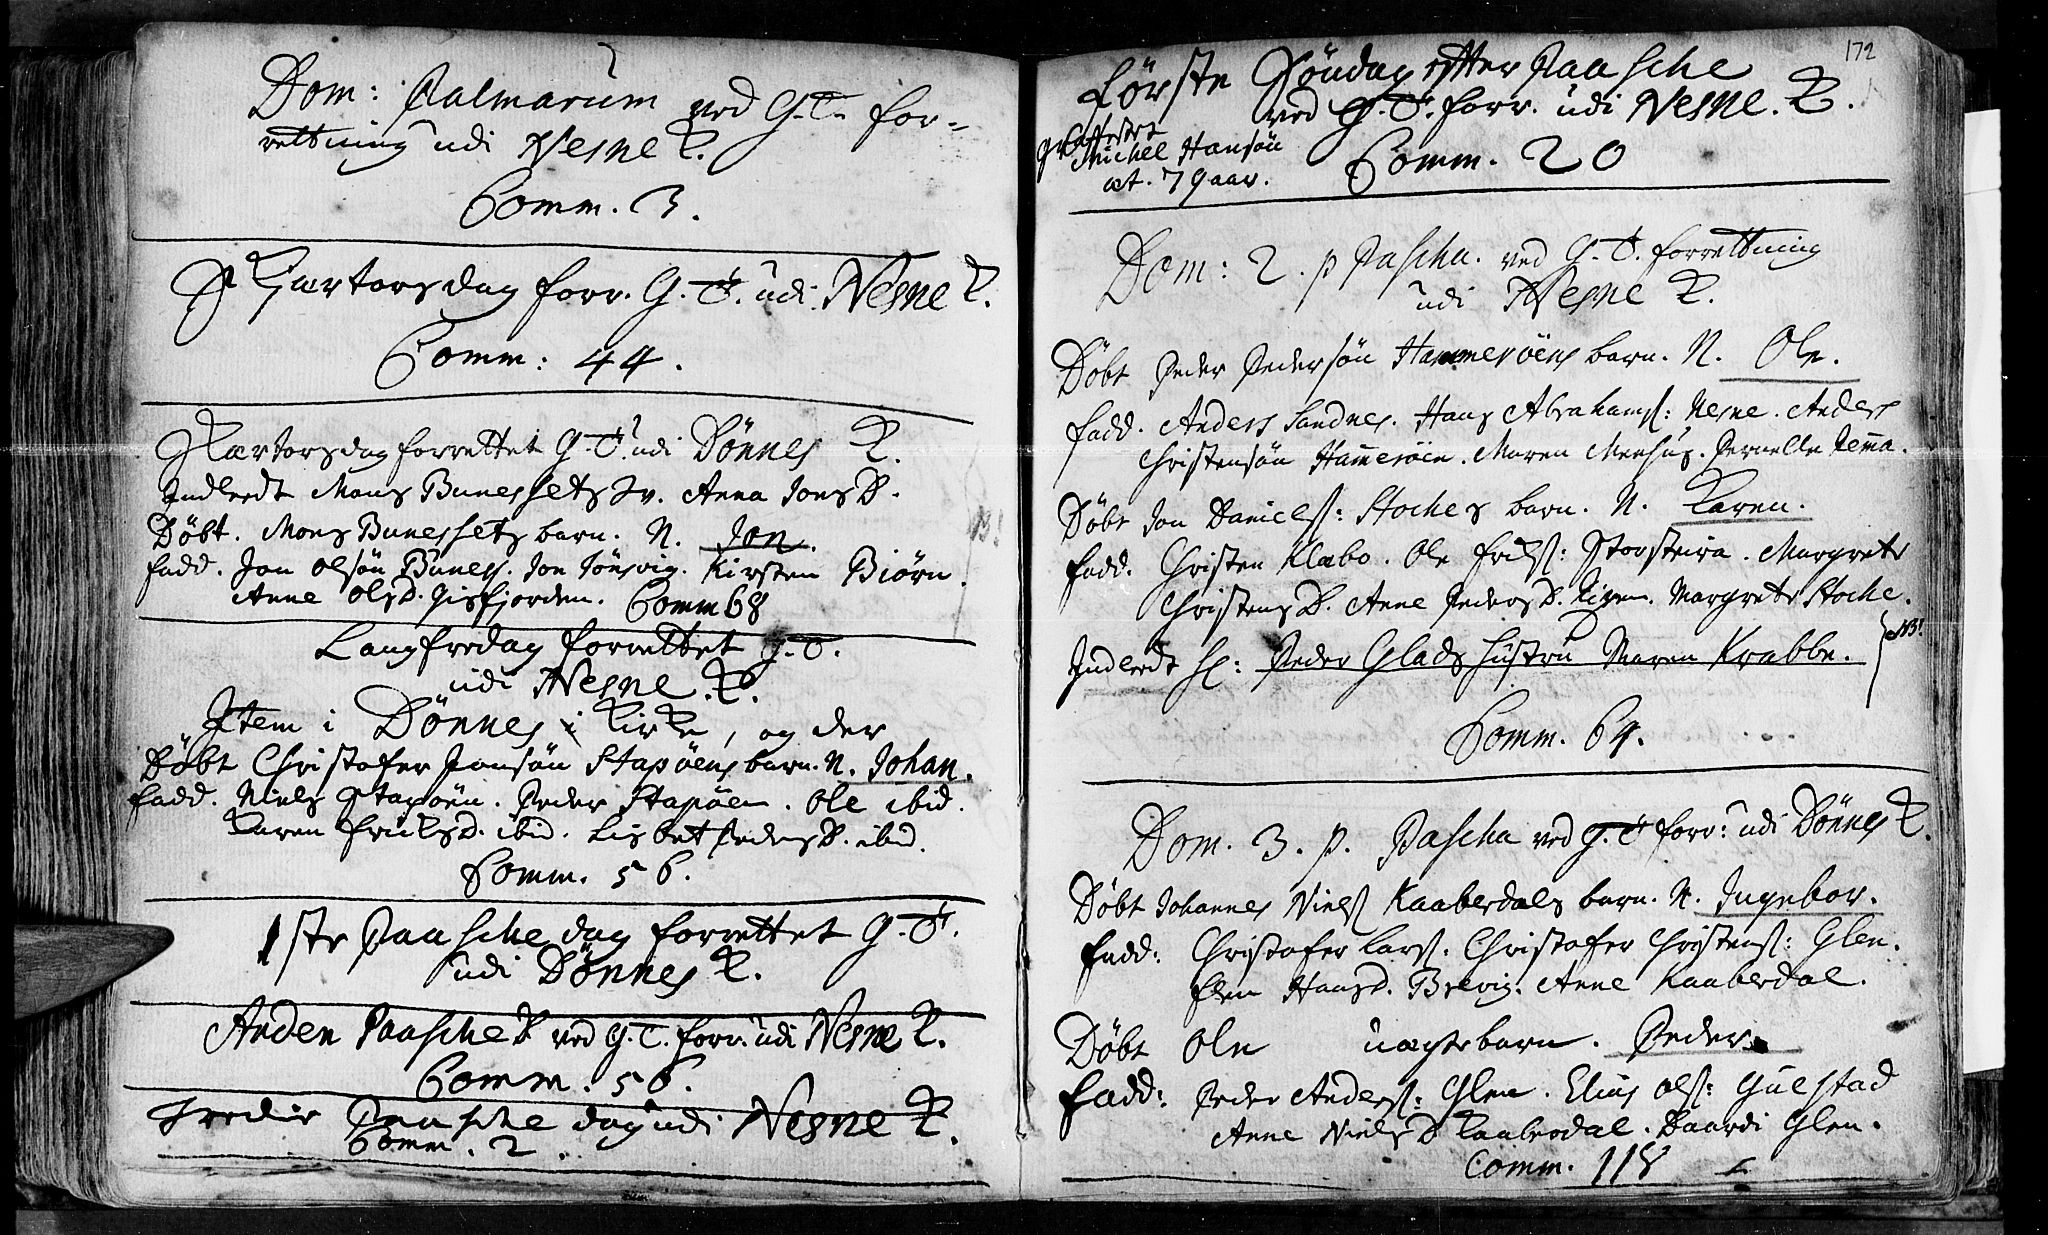 Dom: Palmarum ved G.T. for-
rettning udi Nesne K.
Comm. 3.
Skjærtorsdag forr. G.T. udi Nesne K.
Comm: 44.
Skærtorsdag forrettet G.T. udi Dönnes K.
Indledt Mons Bunessets Anna JonsD.
Döbt. Mons Bunessets barn. N. Jon.
fadd. Jon Olsön Buness. Jon Kirsten Biörn.
Anne OlsD. Comm 68
Langfredag forrettet G.T.
udi Nesne K.
Item i Dönnes Kirke, og der
Döbt Christofer Jonsön Stapöens barn. N. Johan.
fadd. Niels Stapöen. Peder Stapöen. Ole ibid.
Karen FriksD. ibid. Lisbet PedersD. ibid.
Comm. 56.
1ste Paasche dag forrettet G.T.
udi Dönnes K.
Anden Paasche D ved G.T. forr. udi Nesne K.
Comm. 56.
Tredie Paasche dag udi Nesne K.
Comm. 2.
172
Förste Söndag efter Paasche
ved G.T. forr. udi Nesne K.
Michel Hansön
æt. 79 aar.
Comm. 20
Dom: 2. p Pascha. ved G.T. forrettning
udi Nesne K.
Döbt Peder Pedersön Hammeröens barn. N. Ole.
fadd. Anders Sandnes. Hans Abrahams: Nesne. Anders
Christensön Ham̄eröen. Maren Meehus. Pernelle
Döbt Jon Daniels: Stoches barn. N. Karen.
fadd. Christen Klæbo. Ole Storsteira. Margrete
ChristensD. Anne PedersD. Margrete Stoche.
Indledt Sl: Peder Glads Hustru Maren Krabbe. NB!
Comm. 64.
Dom. 3. p. Pascha ved G.T. forr: udi Dönnes K.
Döbt Johannes Niels Kaaberdals barn. N. Ingebor.
fadd: Christofer Lars: Christofer Christens: Glen.
Elen HansD. Brevig. Anne Kaaberdal.
Döbt Ole uægte barn. Peder.
fadd: Peder Anders: Glen. Elias Ols: Gulstad
Anne NielsD Kaaberdal. Baardi Glen.
Comm. 118